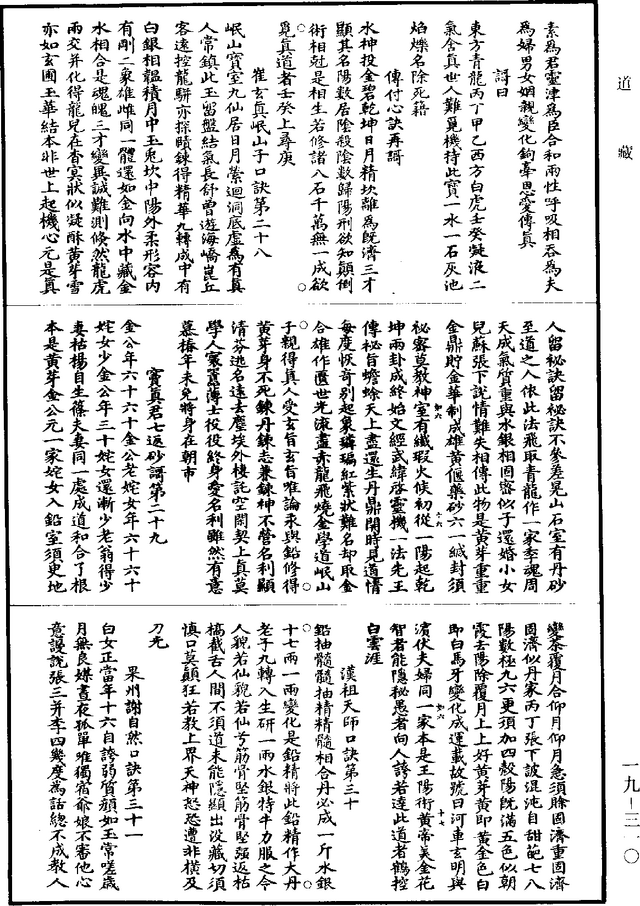 道藏
素為君靈津為臣合和兩性呼吸相吞為夫
為婦男女姻親變化鉤牽恩愛傳真
謌曰
東方青龍丙丁甲乙西方白虎壬癸凝液二
氣含真世人難覓機持此寶一水一石灰池
焰爍名除死籍
傳付心訣再謌
水神投金碧乾坤日月精坎離為既濟三才
顯其名陽數居陰殺陰數歸陽刑欲知顛倒
術相尅是相生若修諸八石千萬無一成欲
覓真道者壬癸上尋庚
崔玄真岷山子口訣第二十八
岷山寶室九仙居日月縈迴洞底虛為有真
人常鎮此玉留盤結氣長舒曾遊海嶠崑丘
客遠控龍駢亦探賾鍊得精華九轉成中有
白銀相韞積月中玉兎坎中陽外柔形容內
有剛二象雄雌同一體還如金向水中藏金
水相合是魂魄三才變異誠難測倏然龍虎
兩交并化得龍兒在杳冥狀似凝酥黃芽雪
亦如玄圃玉華結本非世上起機心元是真
人留秘訣留秘訣不參差晃山石室有丹砂
至道之人依此法飛取青龍作一家李魂周
天成氣質重與水銀相固密似子還婚小女
兒蘇張下說情難失相傳此物是黃芽重重
金鼎貯金華制成雄黃偃藥砂六一緘封須
祕密莫教神室有纖瑕火候初從一陽起乾
坤兩卦成終始文經武緯啓靈機一法先王
傳秘旨蟾蜍天上盡還生丹鼎開時見道情
每度恢奇別起象璘㻞紅紫狀難名却取金
合雄作匱世光液盡赤龍飛燒金學道岷山
子親得真人受玄旨玄旨唯論汞與鉛修得
黃芽身不死鍊丹鍊志兼鍊神不營名利顯
清芬逃名遠去塵埃外棲託空閑契上真莫
學人寰嚚薄士役役終身愛名利雖然有意
慕椿年未免將身在朝市
寶真君七返砂謌第二十九
金公年六十六十金公老姹女年六十六十
姹女少金公年三十姹女還漸少老翁得少
妻枯楊自生蓧夫妻同一處成道和合了根
本是黃芽金公元一家姹女入鉛室須更地
變荼覆月合仰月仰月急須賒固濟重固濟
固濟似丹家丙丁張下詖混沌自甜葩七八
陽數極九六更須加四殼陽既滿五色似朝
霞去陽除覆月上上好黃芽黃即黃金色白
即白馬牙變化成運載故號曰河車玄明與
濱伏夫婦同一家本是王陽術黃帝美金花
智者能隱秘愚者向人誇若達此道者鶴控
白雲涯
漢祖天師口訣第三十
鉛抽髓髓抽精精髓相合丹必成一斤水銀
十七兩一兩變化是鉛精將此鉛精作大丹
老子九轉入生研一兩水銀特牛力服之令
人貌若仙貌若仙兮筋骨堅筋骨堅強返枯
槁截舌人間不須道未能隱顯出没藏切須
慎口莫顛狂若教上界天神怒恐遭非橫及
刀兀
果州謝自然口訣第三十一
白女正當年十六自誇弱質顔如玉常嗟歲
月無良媒晝夜孤單堆獨宿爺娘不審他心
意謾說張三并李四幾度為話總不成教人
一九-三一〇